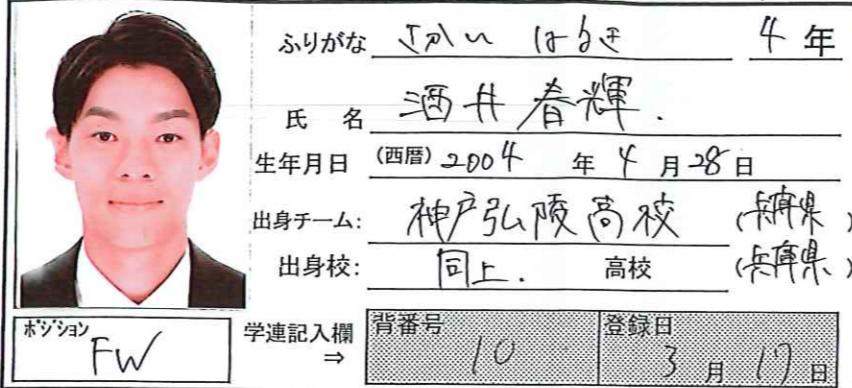 ふりがな さかい はるき 4年
氏名 酒井 春輝.
生年月日 (西暦) 2004 年 4 月 28 日
出身チーム: 神戸弘陵高校 (兵庫県)
出身校: 同上. 高校 (兵庫県)
ポジション FW
学連記入欄 ⇒
背番号 10
登録日 3 月 17 日